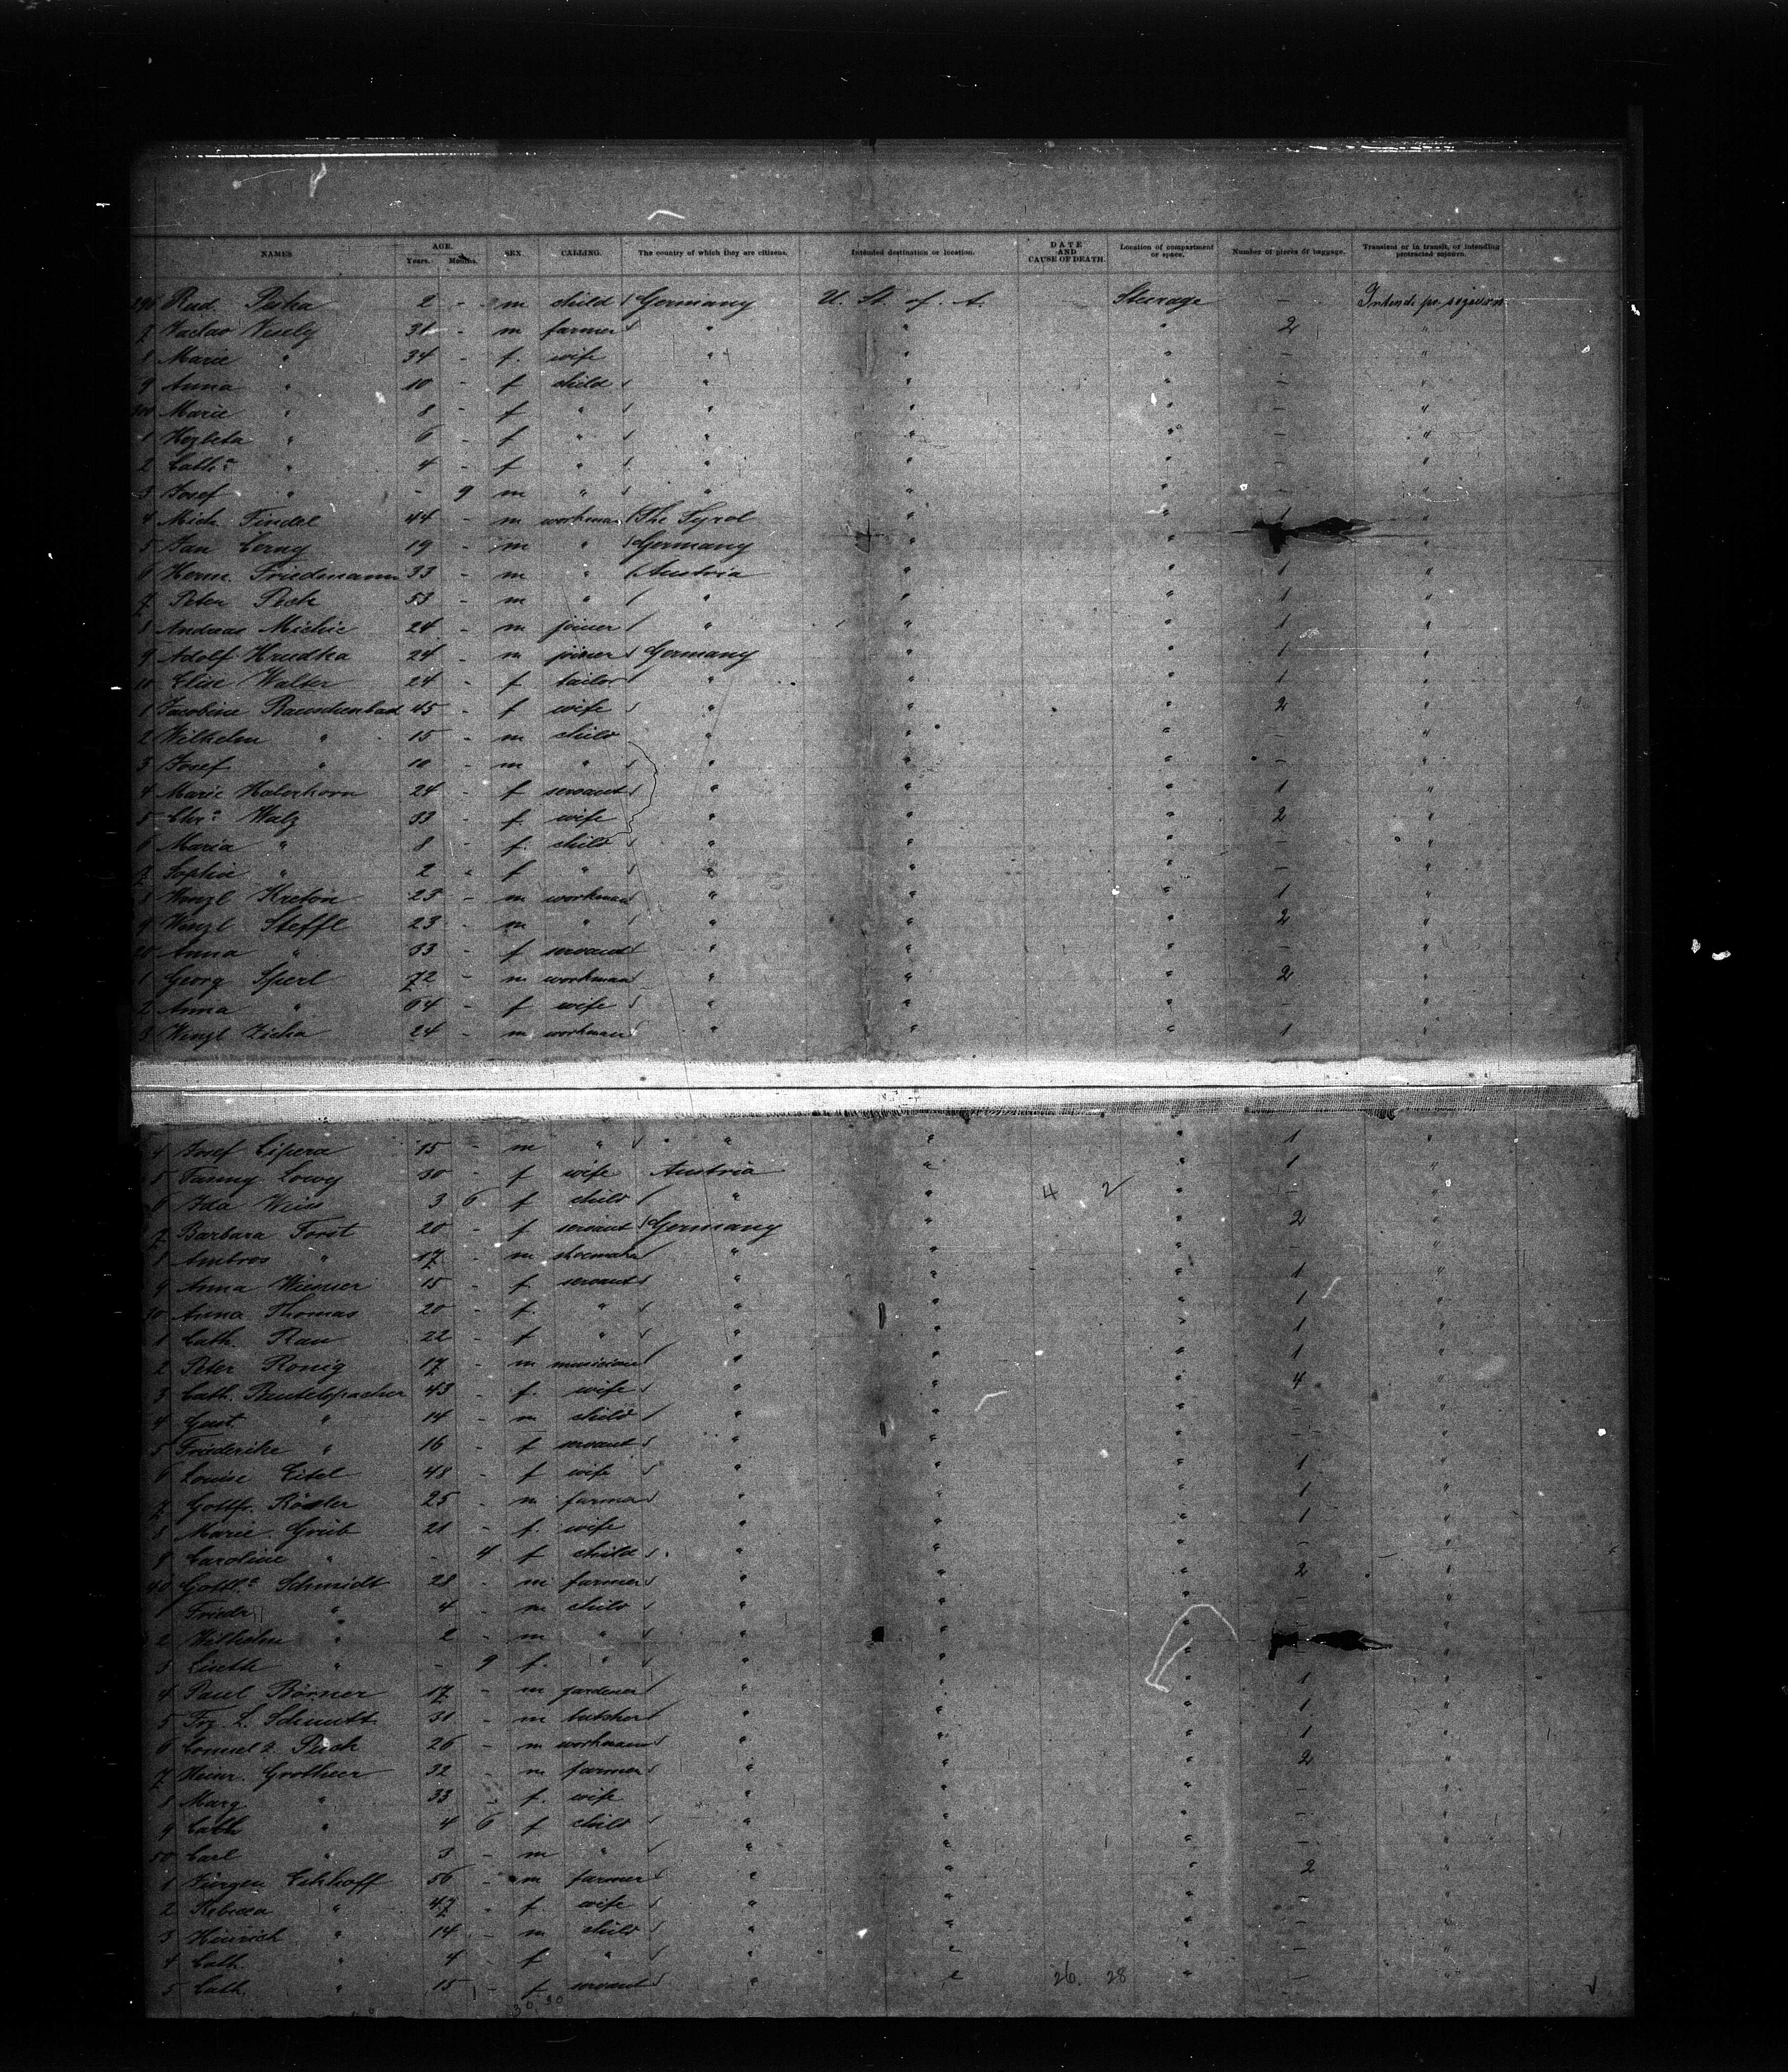 NAMES AGE. Years. Months. SEX. CALLING. The country of which they are citizens. Intended destination or location. DATE AND CAUSE OF DEATH. Location of compartment or space. Number of pieces of baggage. Transient or in transit, or intending protracted sojourn.
Rud. 2 - m child Germany U. St. of. A. Steerage - Intends pr. sojourn
7 Vaclav Vesely 31 - m farmer " " " 2 "
8 Marie " 34 - f. wife " " " - "
9 Anna " 10 - f child " " " - "
300 Marie " 8 - f " " " " - "
1 " 6 - f " " " " - "
2 Cath.a " 4 - f " " " " - "
3 Josef " - 9 m " " " " - "
4 Mich. Findel 44 - m workman The Tyrol " " 1 "
5 Jan Cerny 19 - m " Germany " " "
6 Herm. Friedmann 33 - m " Austria " " 1 "
7 Peter Pech 53 - m " " " " 1 "
8 Andreas Michic 24 - m joiner " " " 1 "
9 Adolf Hrudka 24 - m joiner Germany " " 1 "
10 Elise Walter 24 - f tailor " " " 1 "
1 Jacobine Rauschenbad 45 - f wife " " " 2 "
2 Wilhelm " 15 - m child " " " - "
3 Josef " 10 - m " " " " - "
4 Marie Haberkorn 24 - f servant " " " 1 "
5 Chr.a Walz 33 - f. wife " " " 2 "
6 Maria " 8 - f. child " " " - "
7 Sophie " 2 - f " " " " - "
8 Wenzl 23 - m workman " " " 1 "
9 Wenzl Steffl 23 - m " " " " 2 "
20 Anna " 33 - f servant " " " - "
1 Georg Sperl 72 - m workman " " " 2 "
2 Anna " 64 - f wife " " " - "
3 Wenzl Zicha 24 - m workman " " " 1 "
4 Josef Cipera 15 - m " " " " 1 "
5 Fanny Lowy 30 - f wife Austria " " 1 "
6 Ida Weiss 3 6 f child " " 4 2 " - "
7 Barbara Forst 20 - f servant Germany " " 2 "
8 Ambros " 17 - m shoemaker " " " - "
9 Anna Wiemer 15 - f servant " " " 1 "
30 Anna Thomas 20 - f. " " " " 1 "
1 Cath. Rau 22 - f " " " " 1 "
2 Peter Ronig 17 - m musician " " " 1 "
3 Cath. Beutelspacher 43 - f. wife " " " 4 "
4 Gust. " 14 - m child " " " - "
5 Friederike " 16 - f servant " " " - "
6 Louise Eitel 48 - f wife " " " 1 "
7 Gottfr. Rösler 25 - m farmer " " " 1 "
8 Marie Grüb 21 - f. wife " " " 1 "
9 Caroline " - 4 f child " " " - "
40 Gottl. Schmidt 28 - m farmer " " " 2 "
1 Friedr. " 4 - m child " " " - "
2 Wilhelm " 2 - m " " " " "
3 " - 9 f. " " " " - "
4 Paul Börner 17 - m gardener " " " 1 "
5 Frz. L. Schmitt 31 - m butcher " " " 1 "
6 26 - m workman " " " 1 "
7 Heinr. Grotheer 32 - m farmer " " " 2 "
8 Marg " 33 - f. wife " " " - "
9 Cath " 4 6 f child " " " - "
50 Carl " 3 - m " " " " - "
1 Jürgen Eckhoff 56 - m farmer " " " 2 "
2 Rebecca " 47 - f wife " " " - "
3 Heinrich " 14 - m child " " " - "
4 Cath. " 4 - f " " " " - "
5 Cath. " 15 - f servant " " 26. 28 " - "